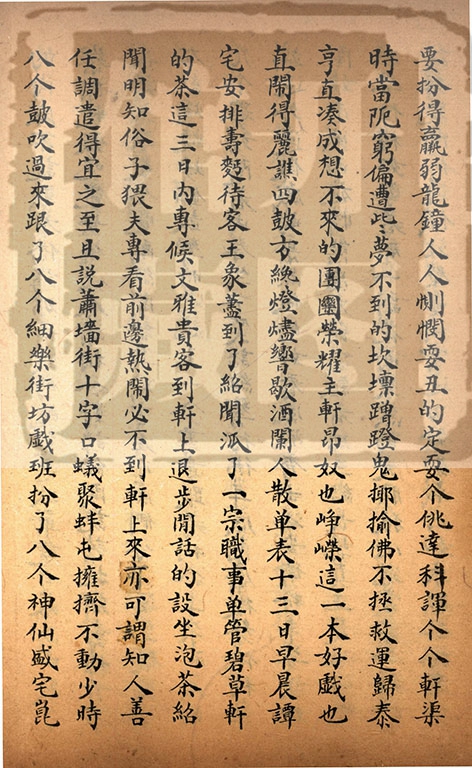 要扮得羸弱龍鐘人人惻憫耍丑的定耍个佻達科諢个个軒渠
時當阨窮偏遭此夢不到的坎壈蹭蹬鬼揶揄佛不拯救運歸泰
亨直凑成想不來的團圞榮耀主軒昂奴也崢嶸這一本好戲也
直閙得麗譙四鼓方纔燈燼響歇酒闌人散单表十三日早晨譚
宅安排壽麪待客王象藎到了紹聞派了一宗職事单管碧草軒
的茶這三日内專候文雅貴客到軒上退步閒話的設坐泡茶紹
聞明知俗子猥夫專看前邊熱閙必不到軒上來亦可謂知人善
任調遣得宜之至且説蕭墻街十字口蟻聚蚌屯擁擠不動少時
八个鼓吹過來跟了八个細樂街坊戲班扮了八个神仙盛宅崑